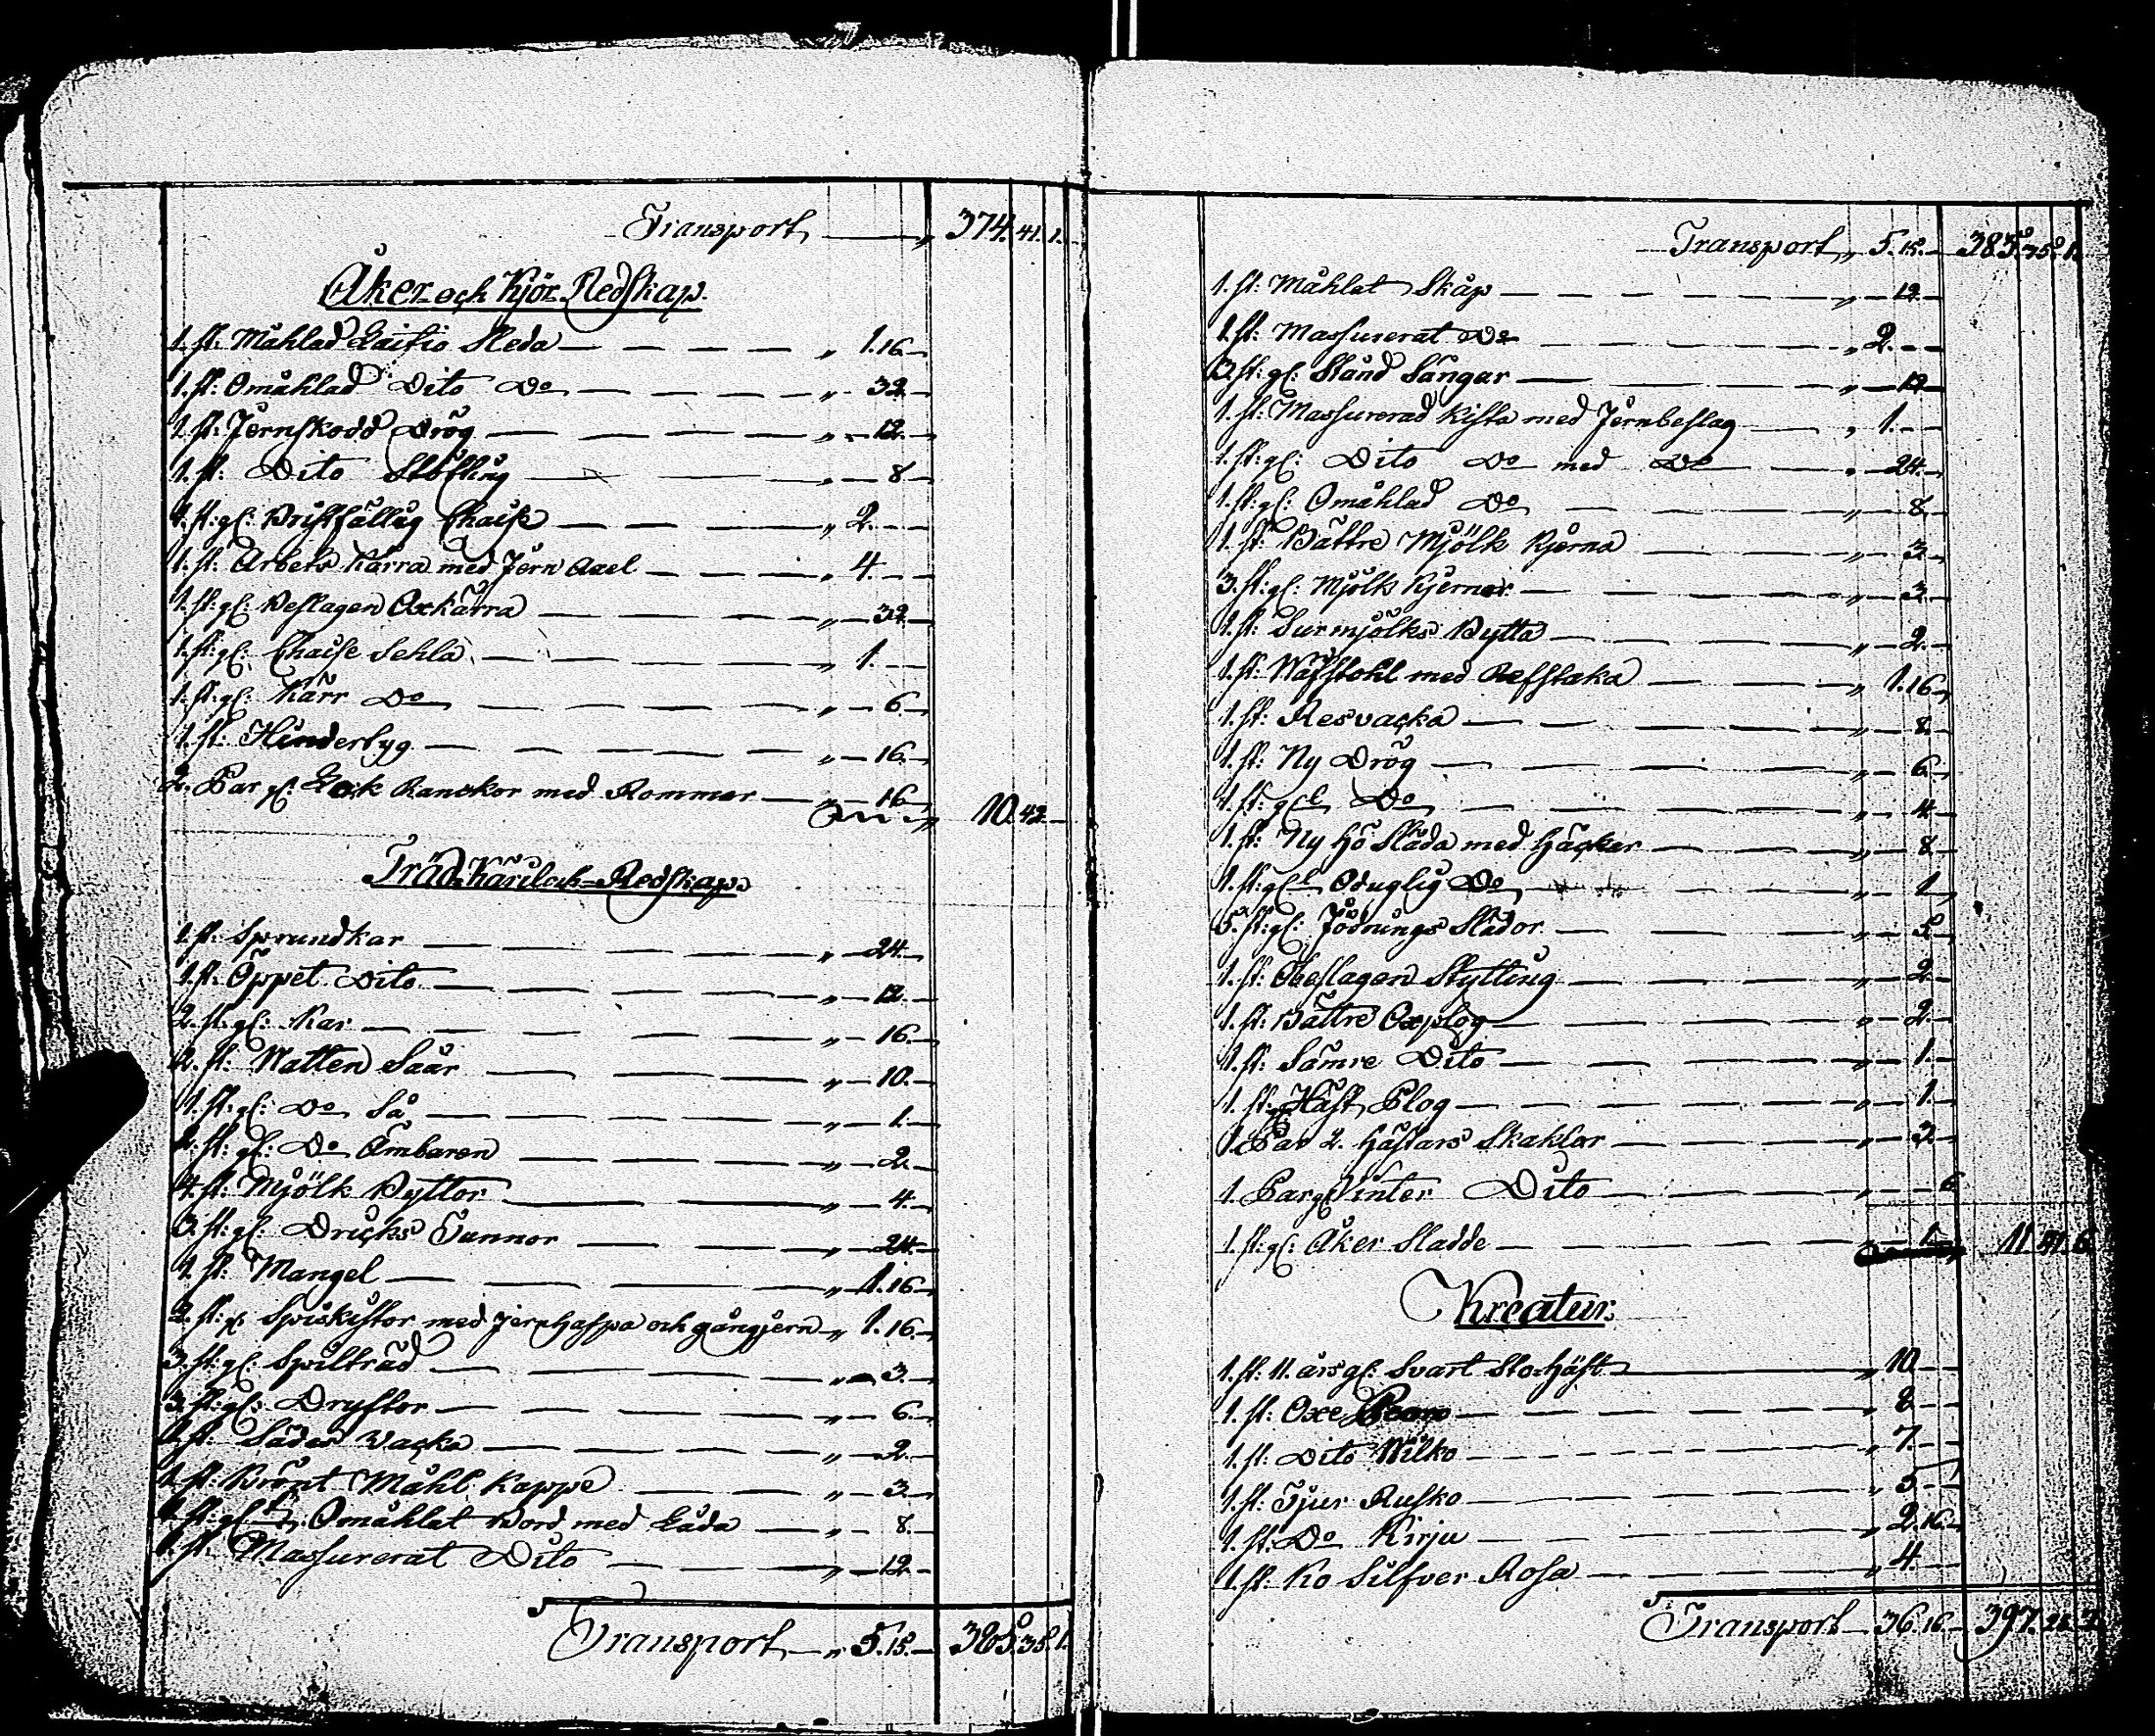 Transport „ 374. 41. 1.
Åker och Kjör Redskap.
1. st: Måhlad Laitio Sleda „ 1. 16
1. st: Omåhlad Dito Do „ 32
1. st: Jernskodd Drög „ 12
1. st: Dito Slöfling „ 8
1. st: gl: Bristfällig Chaise „ 2.
1. st: Arbets Kärra med Jern Axel „ 4.
1. st: gl: Beslagen Oxkärra „ 32
1. st: gl: Chaise Sehla „ 1.
1. st: gl: Kärr Do „ 6.
1. st: Hinderlyg „ 16.
2. Par gl: Lock Ranckor med Rommor „ 16
„ 10. 42
Träd Käril och Redskap.
1. st: Sprundkar „ 24.
1. st: Öppet Dito „ 12.
2. st: gl: Kar „ 16.
2. st: Watten Såar „ 10.
1. st: gl: Do Så „ 1.
2. st: gl: Do Ämbaren „ 2.
4. st: Mjölk Byttor „ 4.
3. st: gl: Dricks Tunnor „ 24.
1. st: Mangel „ 1. 16
2. st: gl: Spiskistor med Jern Haspa och gångjern „ 1. 16.
3. st: gl: Spiltråd „ 3.
3. st: gl: Dryftor „ 6.
1. st: Sädes Vacka „ 2.
1. st: Brönt Måhl Kappe „ 3.
1. st: gl: Omåhlat Bord med Låda „ 8.
1. st: Massurerat Dito „ 12.
Transport „ 5. 15. 385. 35. 1.
Transport „ 5. 15. 385. 35. 1.
1. st: Måhlat Skåp „ 12
1. st: Massurerat Do „ 2.
3. st: gl: Stånd Sängar „ 12
1. st: Massurerad Kista med Jernbeslag „ 1.
1. st: gl: Dito Do med Do „ 24.
1. st: gl: Omåhlad Do „ 8.
1. st: Bättre Mjölk Kjerna „ 3.
3. st: gl: Mjölk Kjernor „ 3.
1. st: Surmjölks Bytta „ 2.
1. st: Wäfstohl med Refstaka „ 1. 16
1. st: Resvacka „ 8.
1. st: Ny Drög „ 6.
1. st: gl Do „ 4.
1. st: Ny Hö Släda med Häcker „ 8
1. st: gl Oduglig Do „ 1
5. st: gl: Jödnings Slädor „ 5
1. st: Obeslagen Skytting „ 2
1. st: Bättre Oxplog „ 2.
1. st: Sämre Dito „ 1.
1. st: gl Häst Plog „ 1.
1. Par 2. Hästars Skaklar „ 3.
1. Par gl Vinter Dito „ 6
1. st: gl: Åker Sladde „ 1. 11. 41. 6
Kreatur.
1. st: 11. års gl: Svart Sto-Häst „ 10
1. st: Oxe „ 8
1. st: Dito Wilko „ 7.
1. st: Tjur Rusko „ 5
1. st: Do Kirju „ 2. 16.
1. st: Ko Silfver Rosa „ 4.
Transport 36. 16. 397.